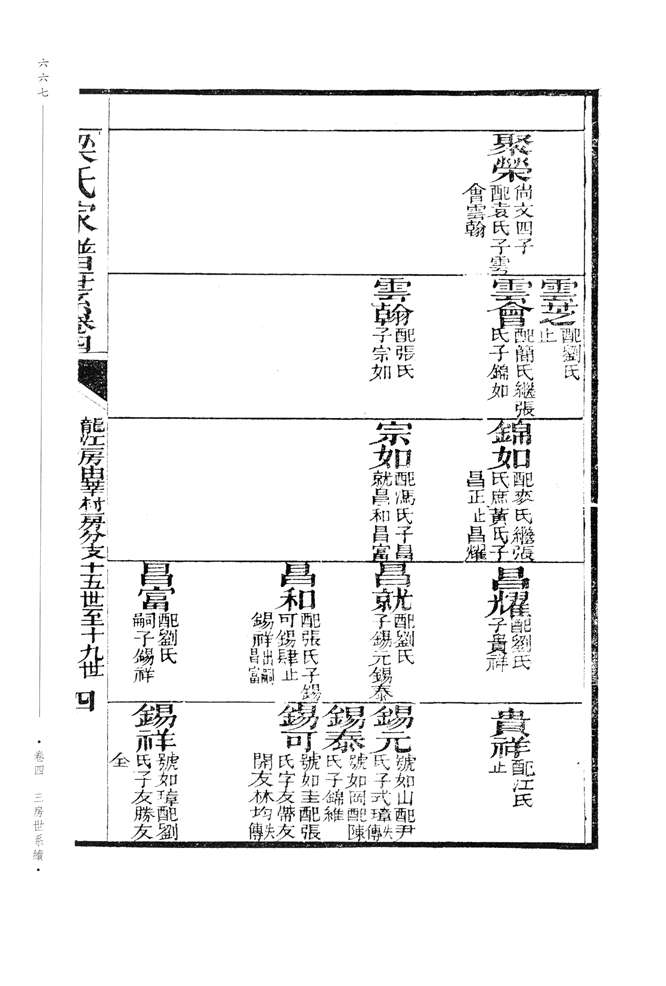 聚榮
尚文四子
配袁氏子雲
會雲翰
雲芝
配劉氏
止
雲會
配簡氏繼張
氏子錦如
雲翰
配張氏
子宗如
錦如
配麥氏繼張
氏庶黃氏子
昌正止昌耀
宗如
配馮氏子昌
就昌和昌富
昌耀
配劉氏
子貴祥
昌就
配劉氏
子錫元錫泰
昌和
配張氏子錫
可錫肆止
錫祥出嗣昌富
昌富
配劉氏
嗣子錫祥
貴祥
配江氏
止
錫元
號如山配尹
氏子式璋佚傳
錫泰
號如岡配陳
氏子錦維
錫可
號如圭配張
氏子友帶友
開友林均佚傳
錫祥
號如璋配劉
氏子友勝友
全
梁氏家譜世系卷四
龍江房由華村房分支十五世至十九世
四
六六七
·卷四 三房世系續·